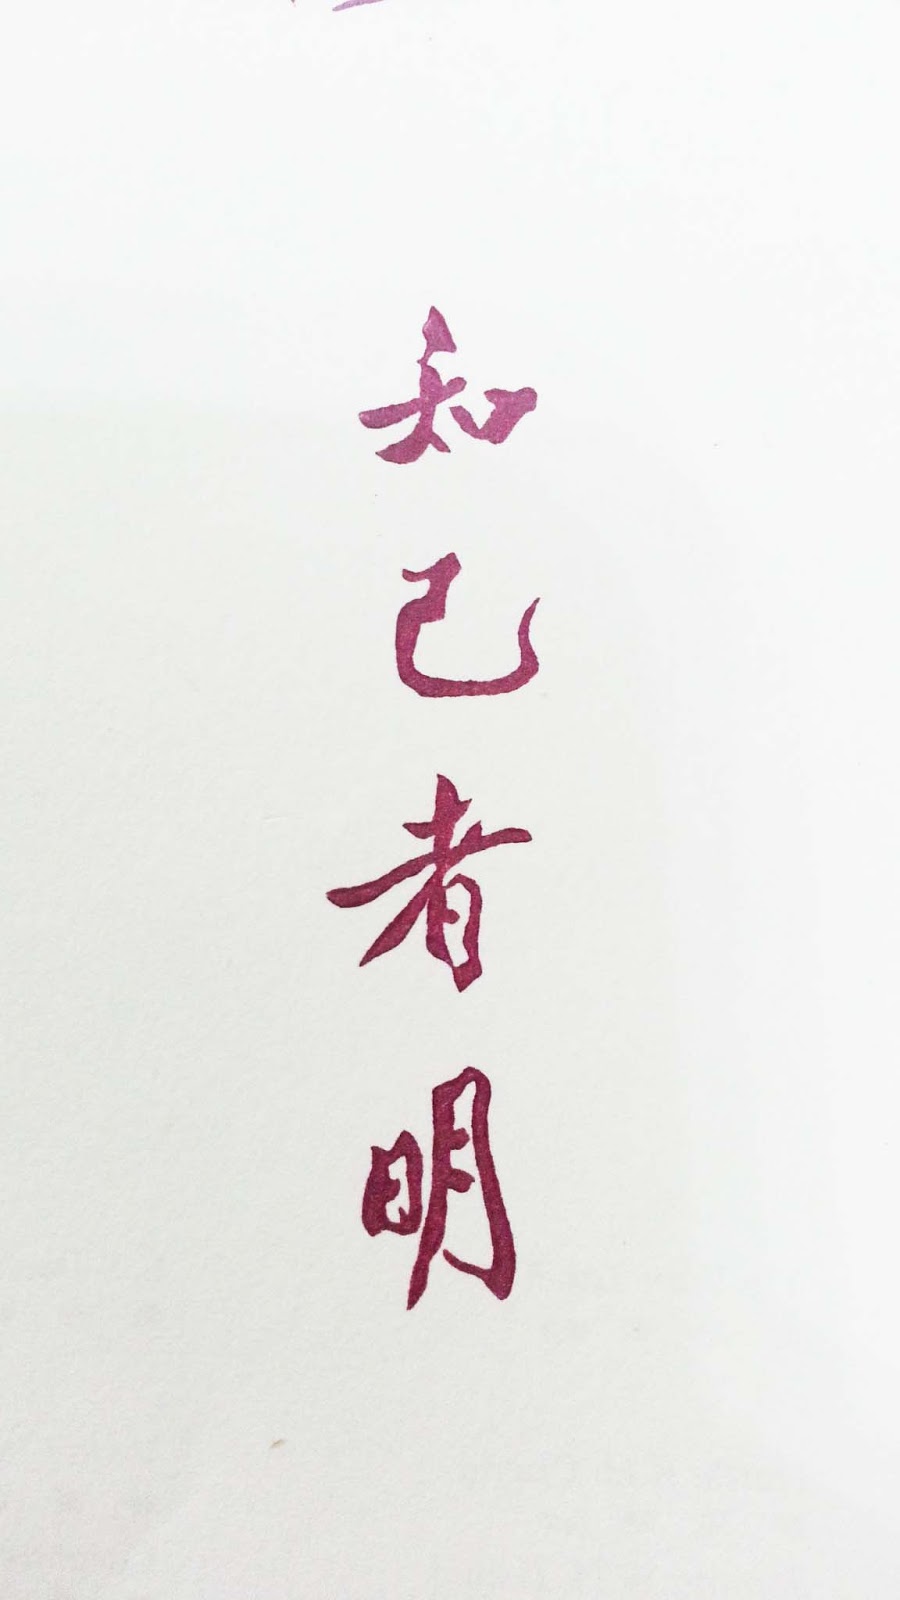 知己者明